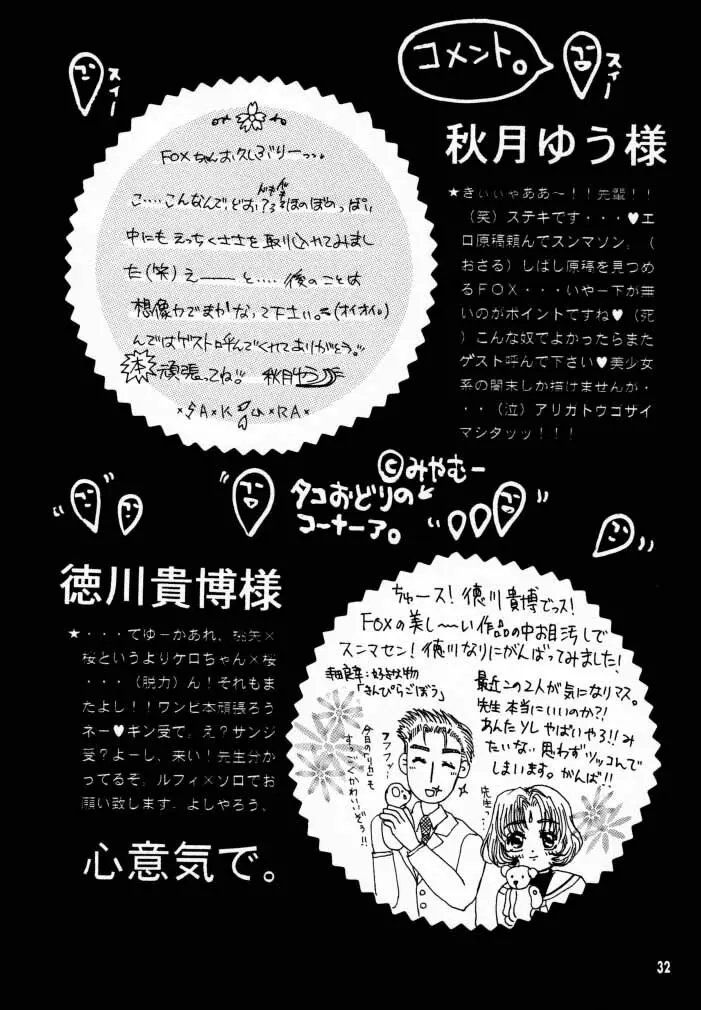 コメント。
スィー
スィー
秋月ゆう様
FOXちゃんお久しぶりーっ。
こ…こんなんで、どお?ろ ほのぼのめっぱい
中にもえっちくささを取り込れてみまし
た(笑)えーーーと…後のことは
想像力でまかなって下さい。(オイオイ。)
んではゲスト呼んでくれてありがとう。
本 頑張ってね。秋月ゆう
×SAKURA×
★きぃぃゃああ〜!!先輩!!
(笑)ステキです・・・♥エ
ロ原稿頼んでスンマソン。(
おさる)しばし原稿を見つめ
るFOX・・・いやー下が無
いのがポイントですね♥(死
)こんな奴でよかったらまた
ゲスト呼んで下さい♥美少女
系の聞末しか描けませんが・
・・(泣)アリガトウゴザイ
マシタッッ!!!
©みやむー
タコおどりの
コーナーア。
徳川貴博様
★・・・てゆーかあれ、桃矢×
桜というよりケロちゃん×桜
・・・(脱力)ん!それもま
たよし!!ワンピ本頑張ろう
ネー♥キン受て。え?サンジ
受?よーし、来い!先生分か
ってるぞ。ルフィ×ゾロでお
願い致します。よしやろう、
心意気で。
ちゅース!徳川貴博でっス!
FOXの美し〜い作品の中お目汚しで
スンマセン!徳川なりにがんばってみました!
寺田良幸:好きな物
「きんぴらごぼう」
最近この2人が気になりマス。
先生本当にいいのか?!
あんたソレやばいやろ!!み
たいな。思わずツッコんで
しまいます。がんば!!
フフフッ…
今日の「リカ」も
すっごくかわいいぞぅ!!
先生…
32